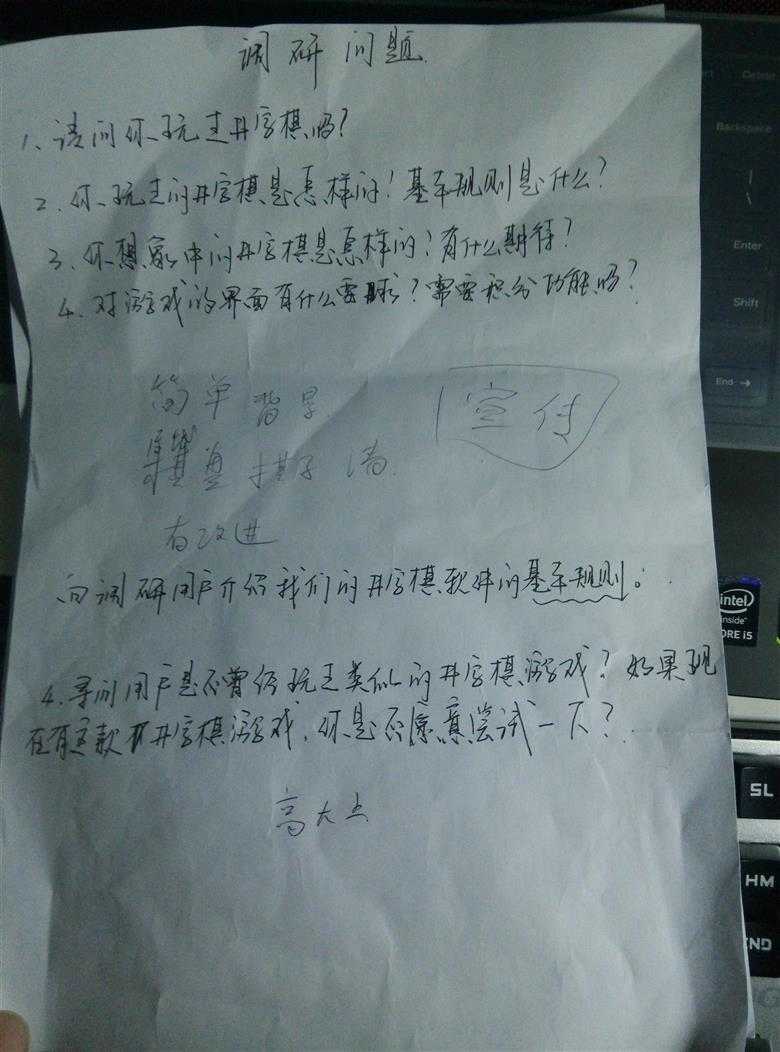 调研问题
1、请问你玩过井字棋吗?
2、你玩过的井字棋是怎样的?基本规则是什么?
3、你想象中的井字棋是怎样的?有什么期待?
4、对游戏的界面有什么要求?需要积分功能吗?
简单 背景
宣传
盘 棋子 清
有改进
向调研用户介绍我们的井字棋软件的基本规则。
4、寻问用户是否曾经玩过类似的井字棋游戏?如果现
在有这款井字棋游戏,你是否愿意尝试一下?
高大上
Delete
Backspace
|
\
Enter
Shift
End →
intel
inside
CORE i5
SL
HM
END